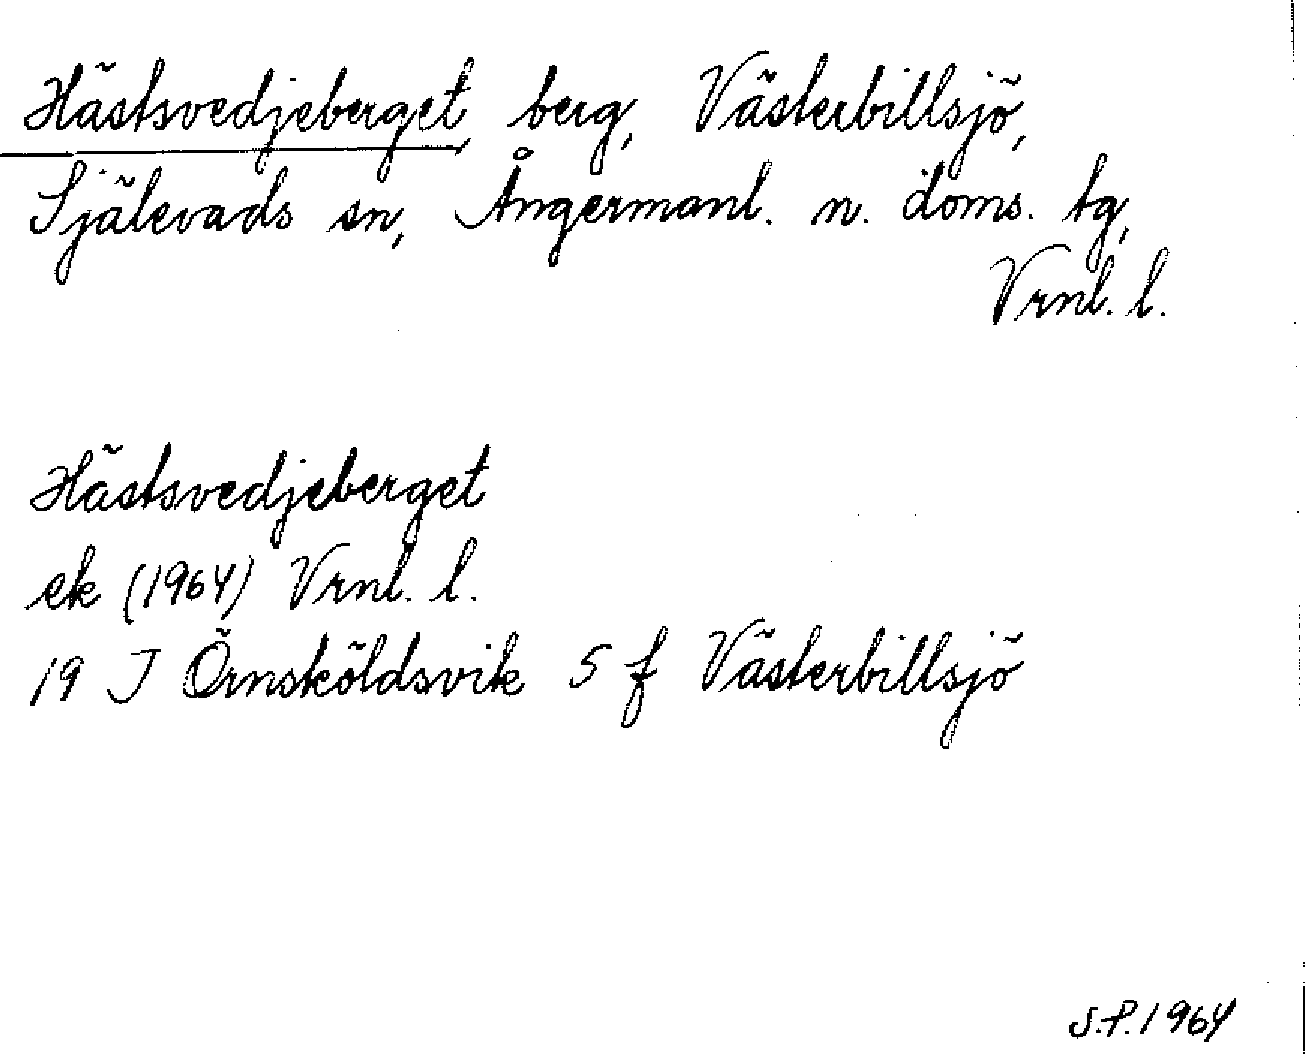 Hästsvedjeberget, berg, Västerbillsjö,
Själevads sn, Ångermanl. n. doms. tg,
Vrnl. l.
Hästsvedjeberget
ek (1964) Vrnl. l.
19 J Örnsköldsvik 5 f Västerbillsjö
S.P. 1964